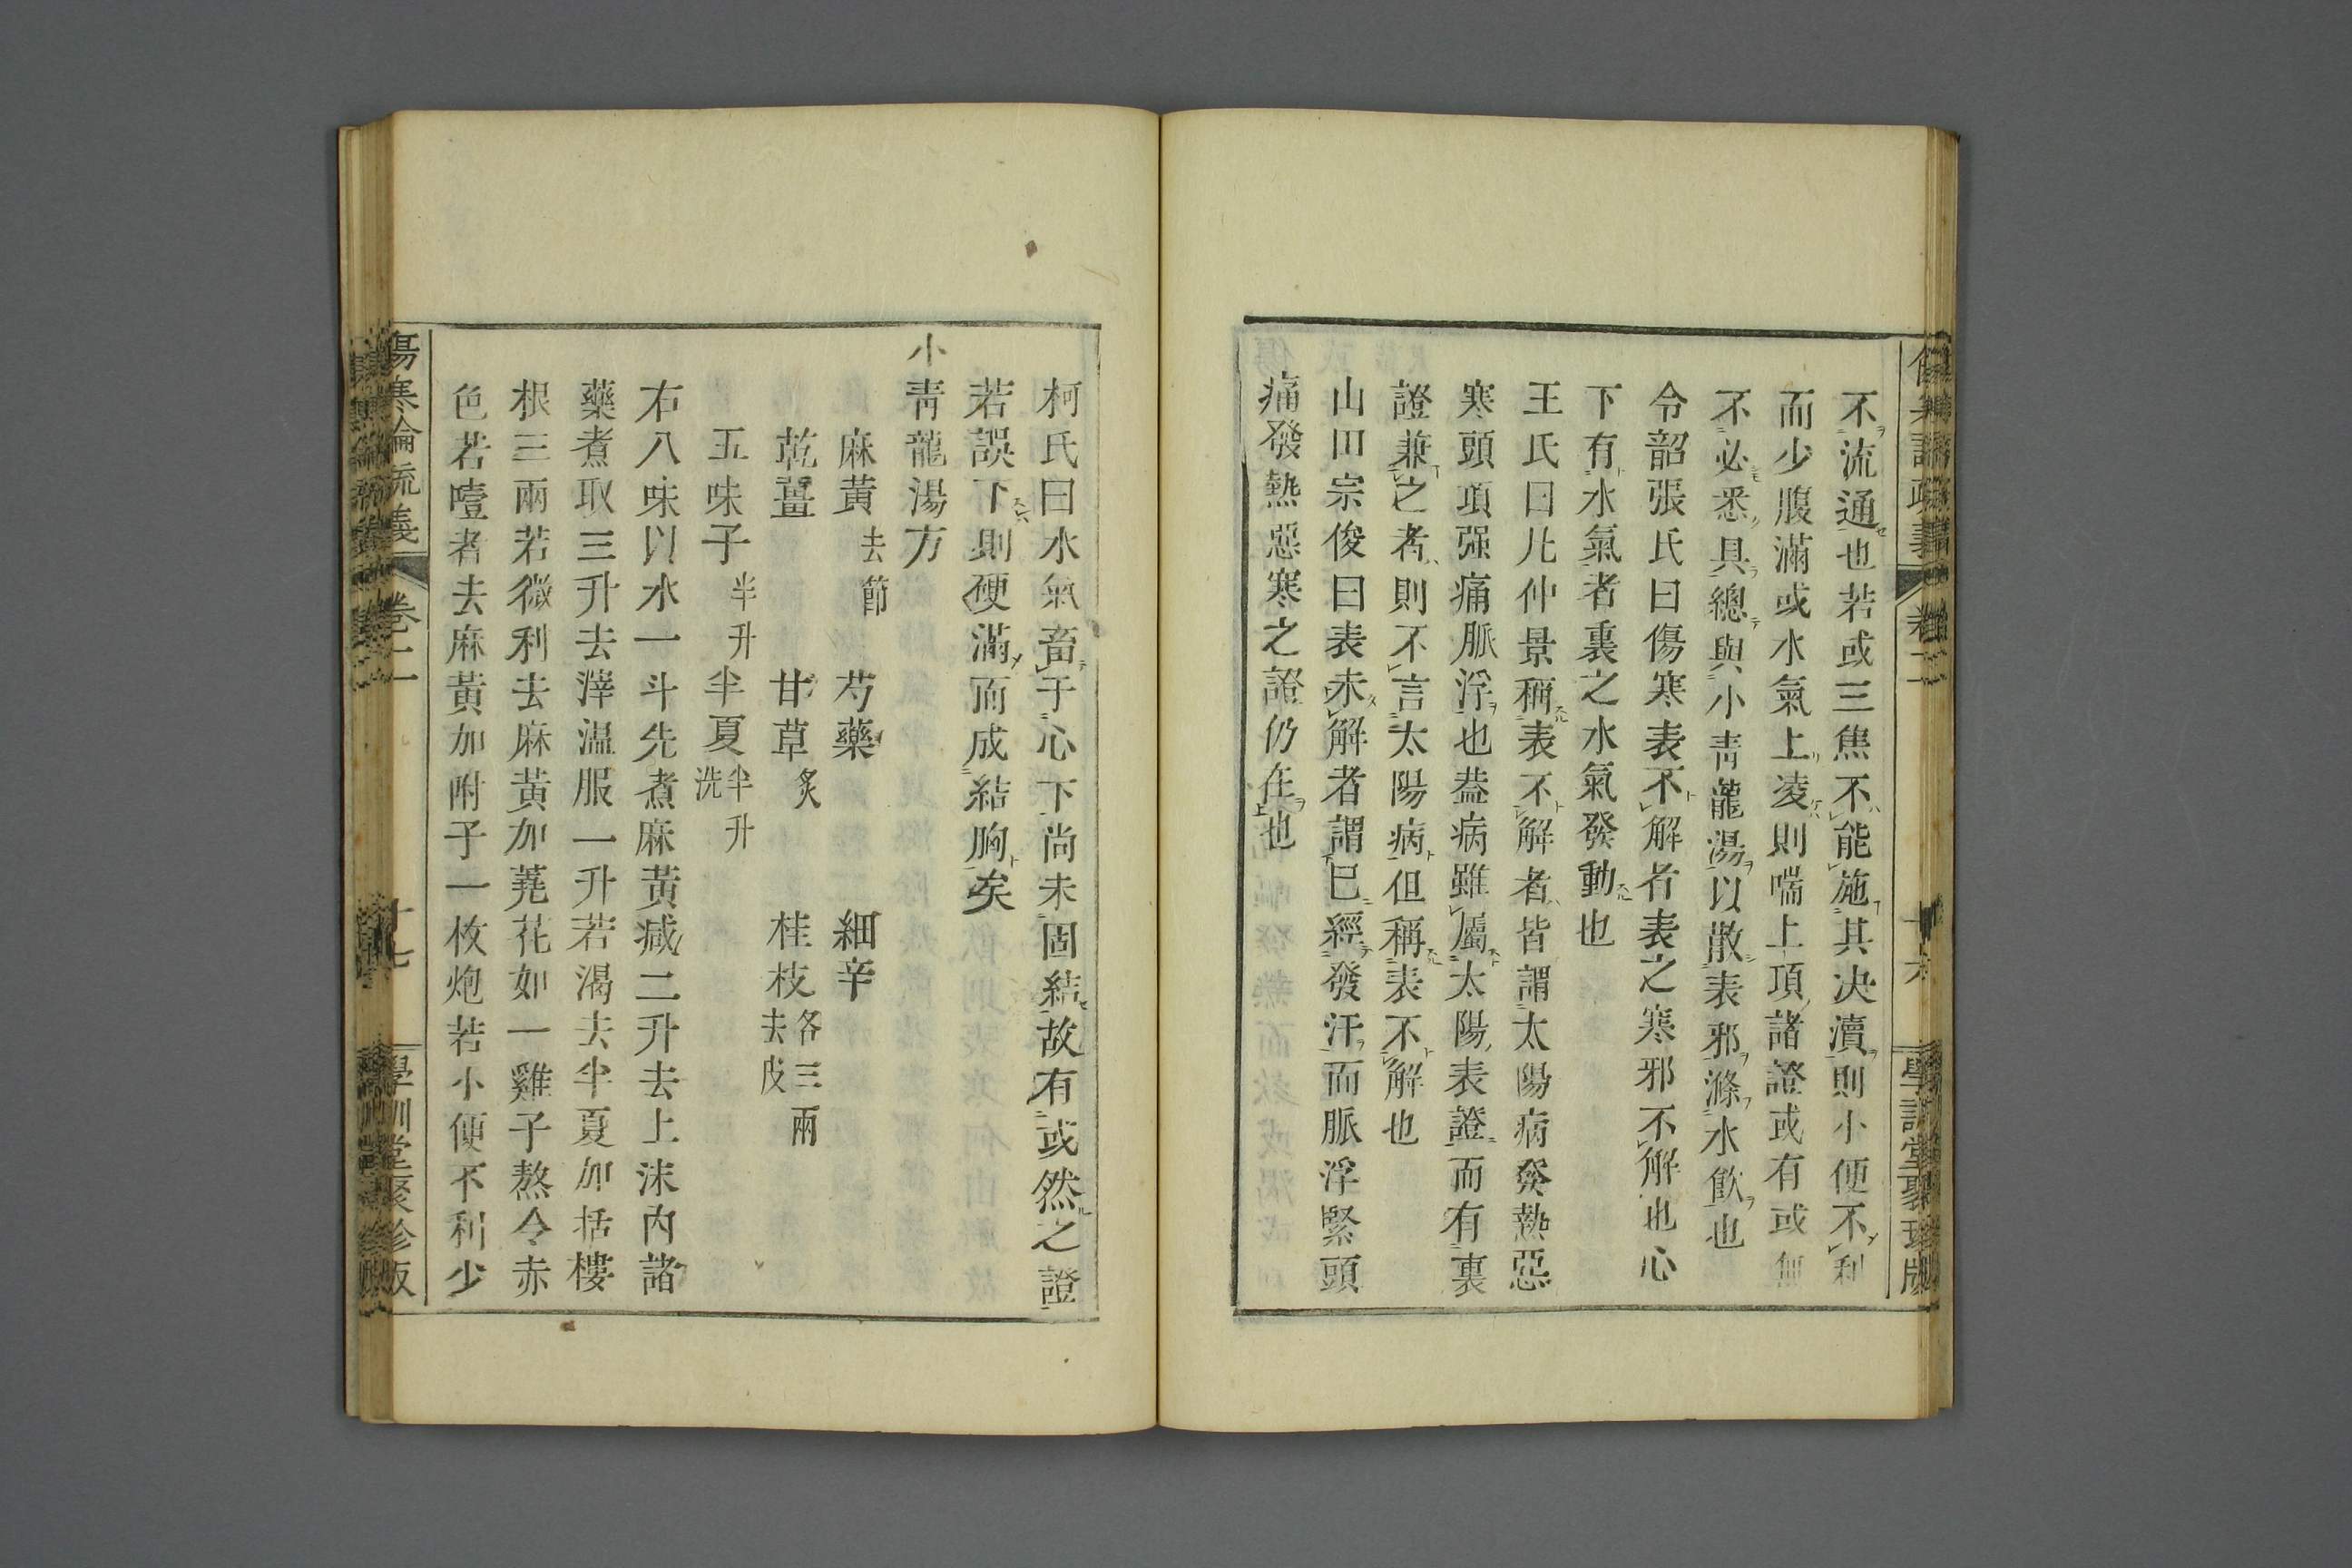 不流通也若或三焦不能施其决瀆則小便不利
而少腹滿或水氣上凌則喘上項諸證或有或無
不必悉具總與小青龍湯以散表邪滌水飮也
令韶張氏曰傷寒表不解者表之寒邪不解也心
下有水氣者裏之水氣發動也
王氏曰凡仲景稱表不解者皆謂太陽病發熱惡
寒頭項强痛脈浮也葢病雖屬太陽表證而有裏
證兼之者則不言太陽病但稱表不解也
山田宗俊曰表未解者謂已經發汗而脈浮緊頭
痛發熱惡寒之證仍在也
柯氏曰水氣畜于心下尚未固結故有或然之證
若誤下則硬滿而成結胸矣
小靑龍湯方
麻黃去節 芍藥 細辛
乾薑 甘草炙 桂枝各三兩去皮
五味子半升 半夏半升洗
右八味以水一斗先煮麻黃減二升去上沫內諸
藥煮取三升去滓溫服一升若渴去半夏加括樓
根三兩若微利去麻黃加蕘花如一雞子熬令赤
色若噎者去麻黃加附子一枚炮若小便不利少
傷寒論疏義 卷二 十七 學訓堂聚珍版